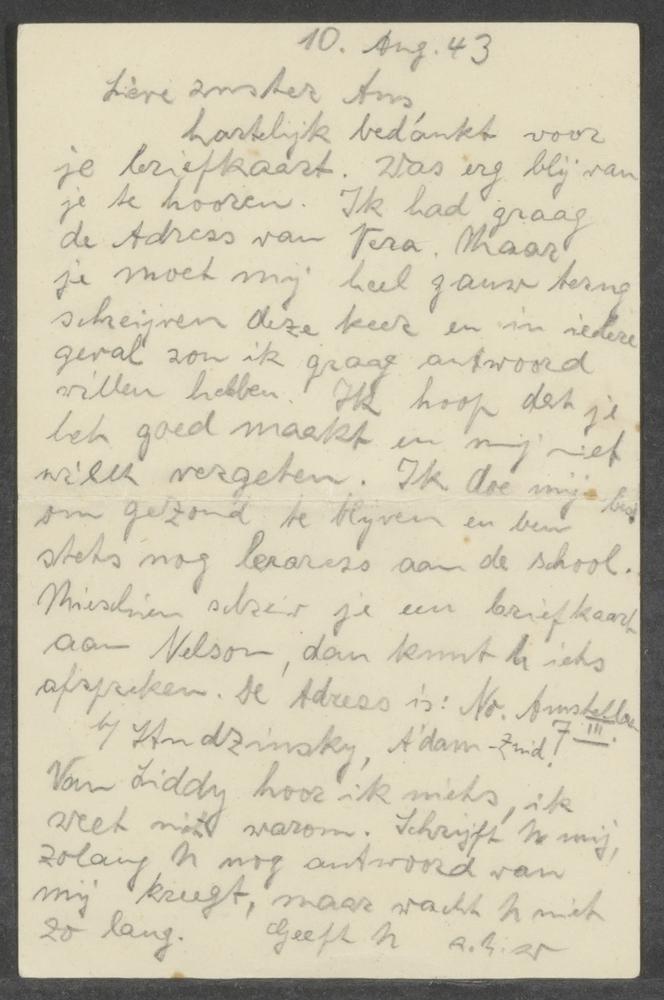 10. Aug. 43
Lieve zuster Ans,
hartelijk bedánkt voor
je briefkaart. Was erg blij van
je te hooren. Ik had graag
de Adress van Vera. Maar
je moet mij heel gauw terug
schreijven deze keer en in iedere
geval zou ik graag antwoord
willen hebben. Ik hoop dat je
het goed maakt en mij niet
willt vergeten. Ik doe mij best
om gezond te blijven en ben
stets nog leraress aan de school.
Mischien schreir je een briefkaart
aan Nelson, dan kunt U iets
afspreken. De Adress is: No. Amstellaan
b/ Studzinsky, A'dam-Zuid. 7 III.
Van Liddy hoor ik niets, ik
weet niet warom. Schrijft U mij,
zolang U nog antwoord van
mij kreegt, maar wacht U niet
zo lang. Geeft U a.u.